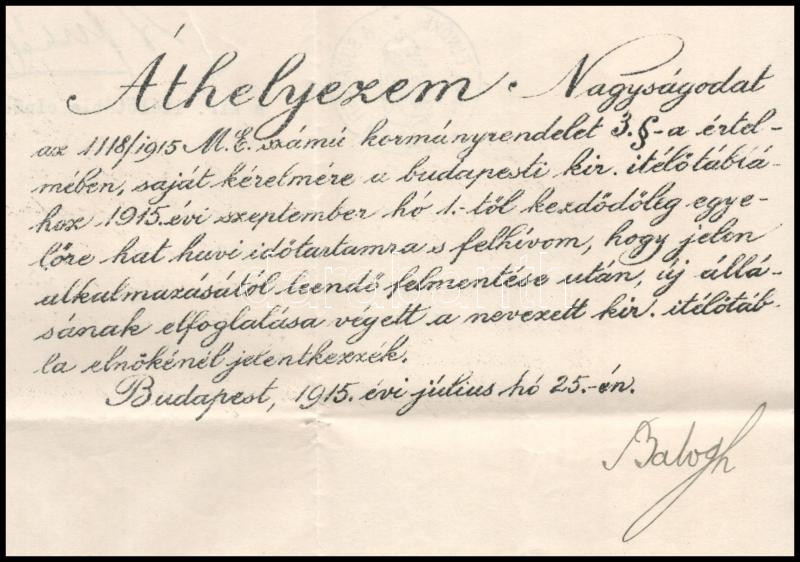 Áthelyezem Nagyságodat
az 1118/1915 M.E. számú kormányrendelet 3.§-a értel-
mében, saját kérelmére a budapesti kir. itélőtáblá-
hoz 1915. évi szeptember hó 1.-től kezdődőleg egye-
lőre hat havi időtartamra s felhívom, hogy jelen
alkalmazásától leendő felmentése után, új állá-
sának elfoglalása végett a nevezett kir. itélőtáb-
la elnökénél jelentkezzék.
Budapest, 1915. évi július hó 25.-én.
Balogh